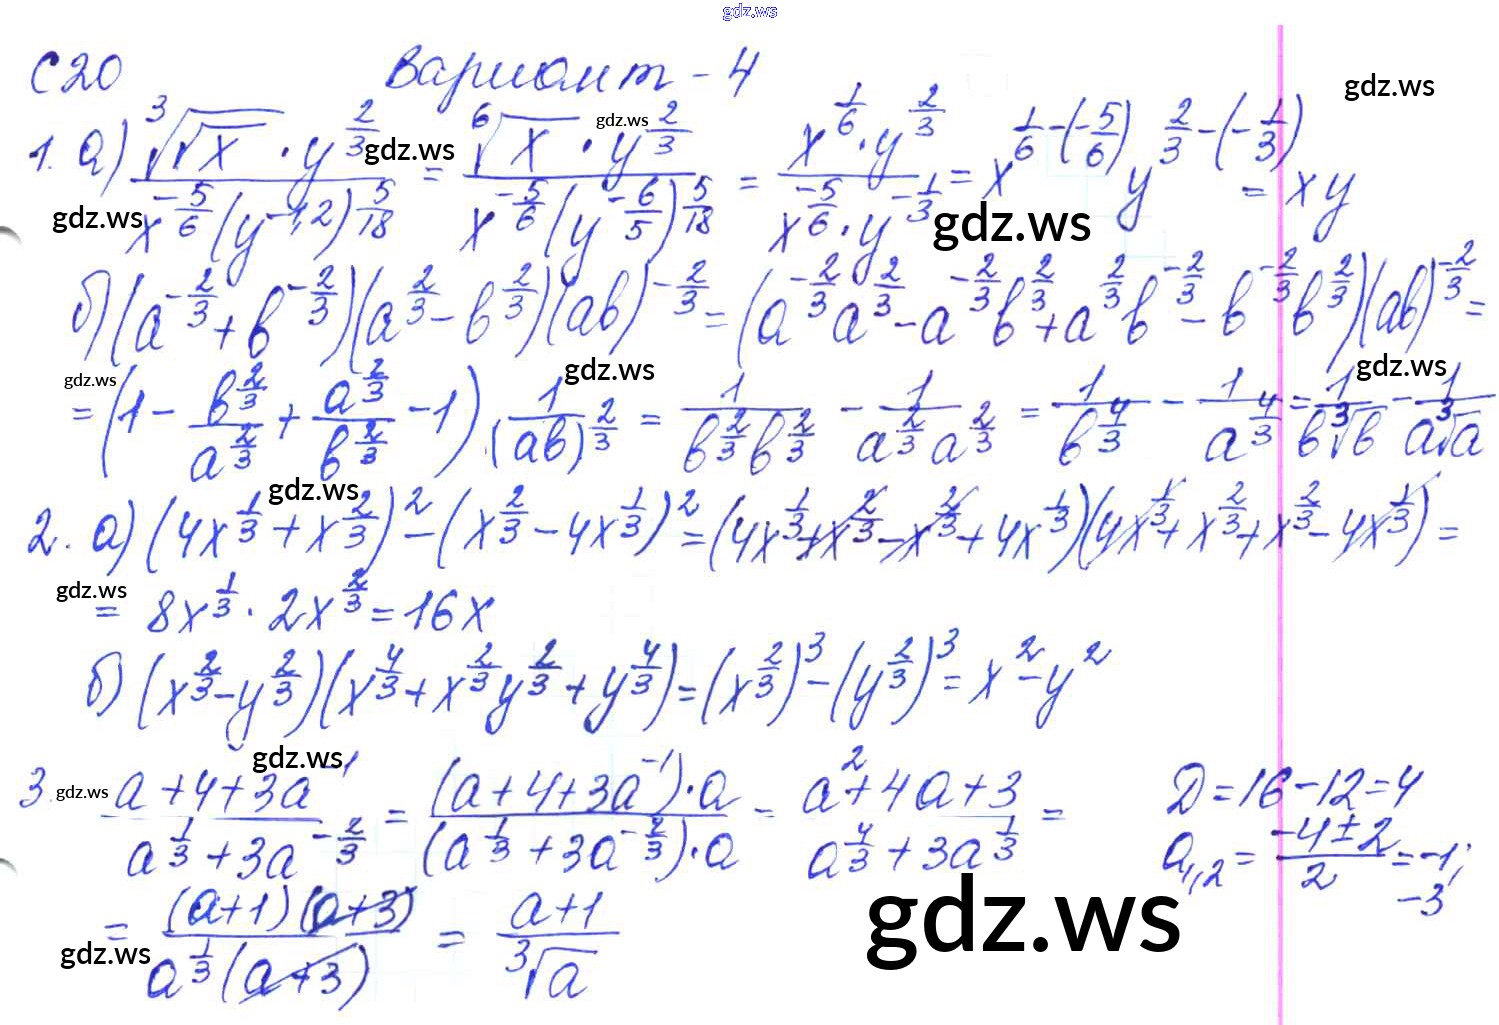 gdz.ws
С20 Вариант - 4 gdz.ws
1. а) ∛(√x) · y^(2/3) / (x^(-5/6) (y^(-1,2))^(5/18)) = ⁶√x · y^(2/3) / (x^(-5/6) (y^(-6/5))^(5/18)) = x^(1/6) · y^(2/3) / (x^(-5/6) · y^(-1/3)) = x^(1/6-(-5/6)) y^(2/3-(-1/3)) = xy
gdz.ws gdz.ws gdz.ws gdz.ws
б) (a^(-2/3) + b^(-2/3))(a^(2/3) - b^(2/3))(ab)^(-2/3) = (a^(-2/3) a^(2/3) - a^(-2/3) b^(2/3) + a^(2/3) b^(-2/3) - b^(-2/3) b^(2/3))(ab)^(-2/3) =
gdz.ws gdz.ws gdz.ws
= (1 - b^(2/3)/a^(2/3) + a^(2/3)/b^(2/3) - 1) · 1/(ab)^(2/3) = 1/(b^(2/3) b^(2/3)) - 1/(a^(2/3) a^(2/3)) = 1/b^(4/3) - 1/a^(4/3) = 1/(b∛b) - 1/(a∛a)
gdz.ws
2. а) (4x^(1/3) + x^(2/3))² - (x^(2/3) - 4x^(1/3))² = (4x^(1/3) + x^(2/3) - x^(2/3) + 4x^(1/3))(4x^(1/3) + x^(2/3) + x^(2/3) - 4x^(1/3)) =
gdz.ws
= 8x^(1/3) · 2x^(2/3) = 16x
б) (x^(2/3) - y^(2/3))(x^(4/3) + x^(2/3) y^(2/3) + y^(4/3)) = (x^(2/3))³ - (y^(2/3))³ = x² - y²
gdz.ws
3. gdz.ws (a + 4 + 3a^(-1)) / (a^(1/3) + 3a^(-2/3)) = (a + 4 + 3a^(-1)) · a / ((a^(1/3) + 3a^(-2/3)) · a) = (a² + 4a + 3) / (a^(4/3) + 3a^(1/3)) =
D = 16 - 12 = 4
a₁,₂ = (-4 ± 2)/2 = -1; -3
= (a+1)(a+3) / (a^(1/3)(a+3)) = (a+1)/∛a
gdz.ws gdz.ws